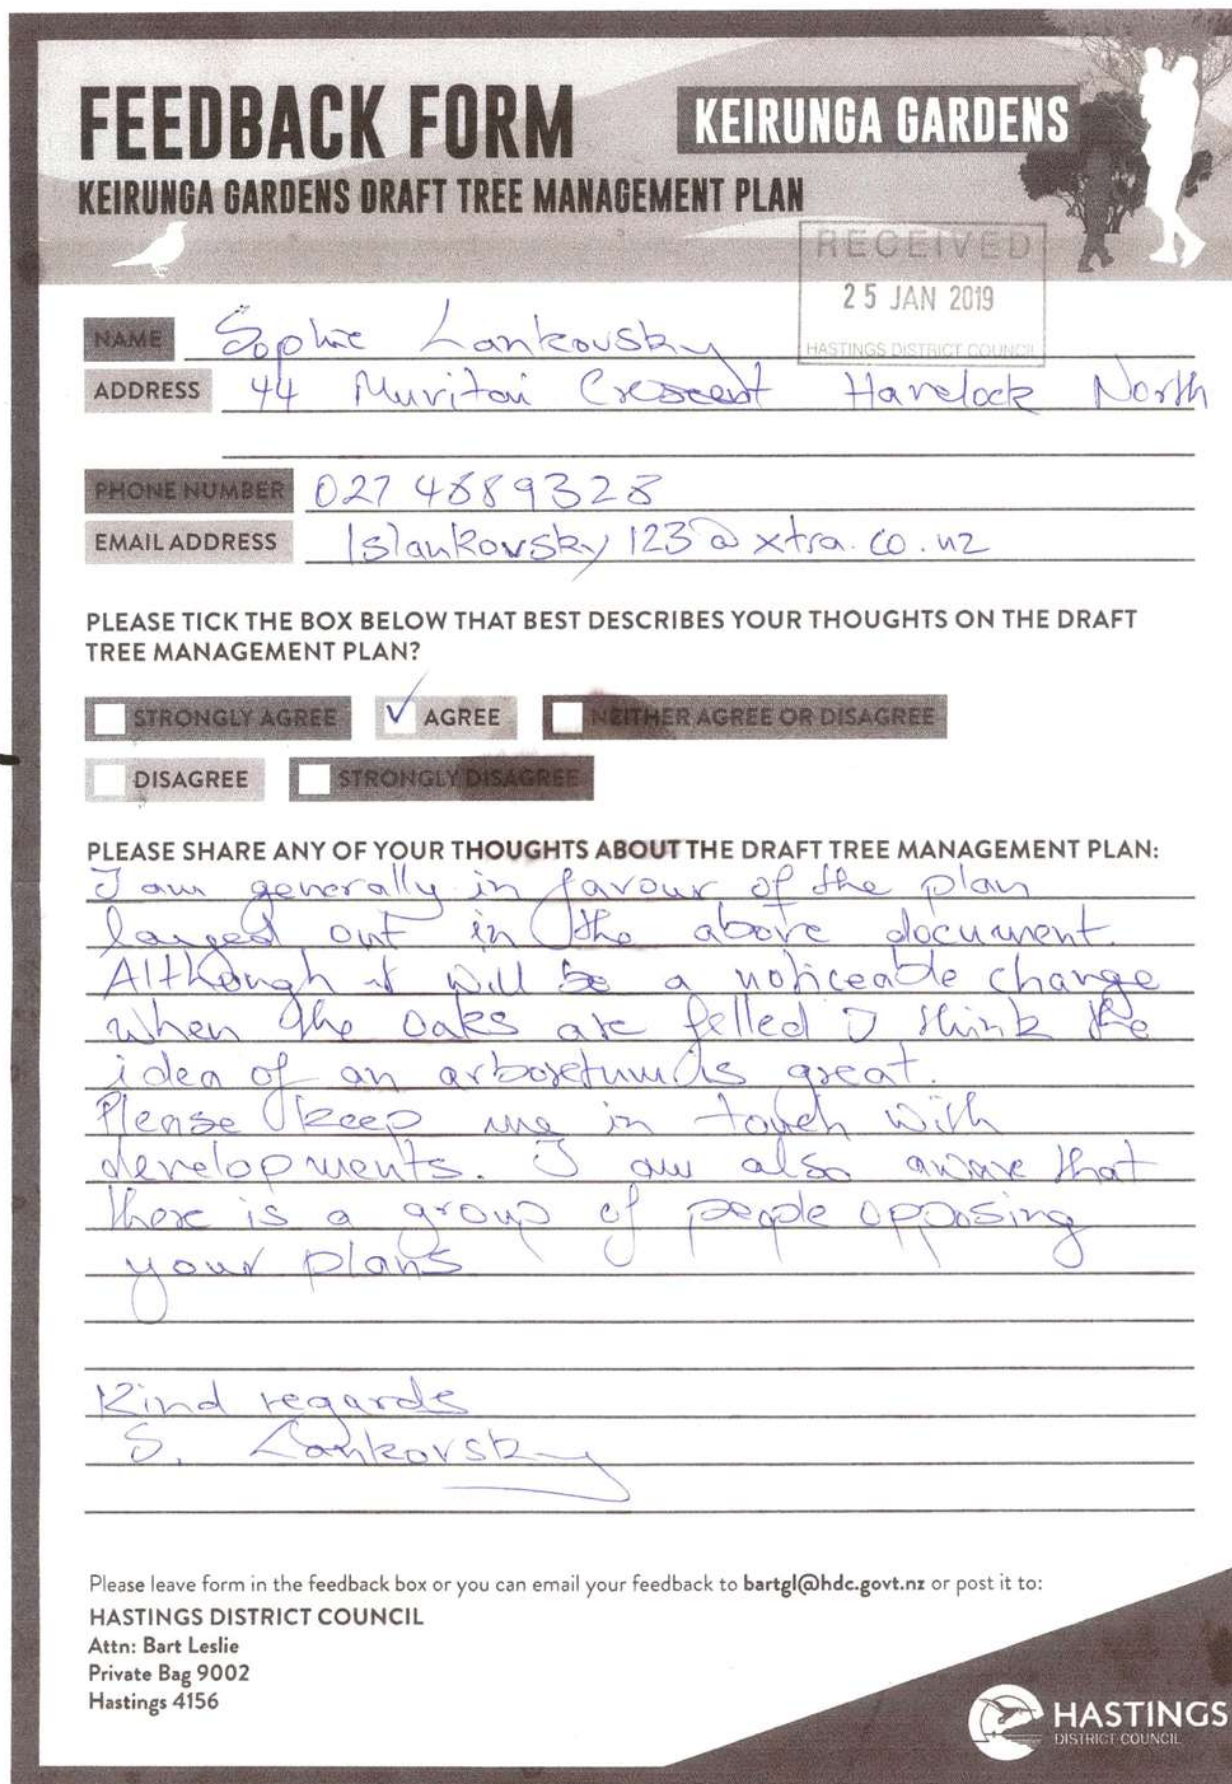 FEEDBACK FORM
KEIRUNGA GARDENS
KEIRUNGA GARDENS DRAFT TREE MANAGEMENT PLAN
RECEIVED
25 JAN 2019
HASTINGS DISTRICT COUNCIL
NAME Sophie Lankovsky
ADDRESS 44 Muritai Crescent Havelock North
PHONE NUMBER 027 4889328
EMAIL ADDRESS lslankovsky123@xtra.co.nz
PLEASE TICK THE BOX BELOW THAT BEST DESCRIBES YOUR THOUGHTS ON THE DRAFT
TREE MANAGEMENT PLAN?
STRONGLY AGREE ✓ AGREE NEITHER AGREE OR DISAGREE
DISAGREE STRONGLY DISAGREE
PLEASE SHARE ANY OF YOUR THOUGHTS ABOUT THE DRAFT TREE MANAGEMENT PLAN:
I am generally in favour of the plan
layed out in the above document.
Although it will be a noticeable change
when the oaks are felled I think the
idea of an arboretum is great.
Please keep me in touch with
developments. I am also aware that
there is a group of people opposing
your plans
Kind regards
S. Lankovsky
Please leave form in the feedback box or you can email your feedback to bartgl@hdc.govt.nz or post it to:
HASTINGS DISTRICT COUNCIL
Attn: Bart Leslie
Private Bag 9002
Hastings 4156
HASTINGS
DISTRICT COUNCIL